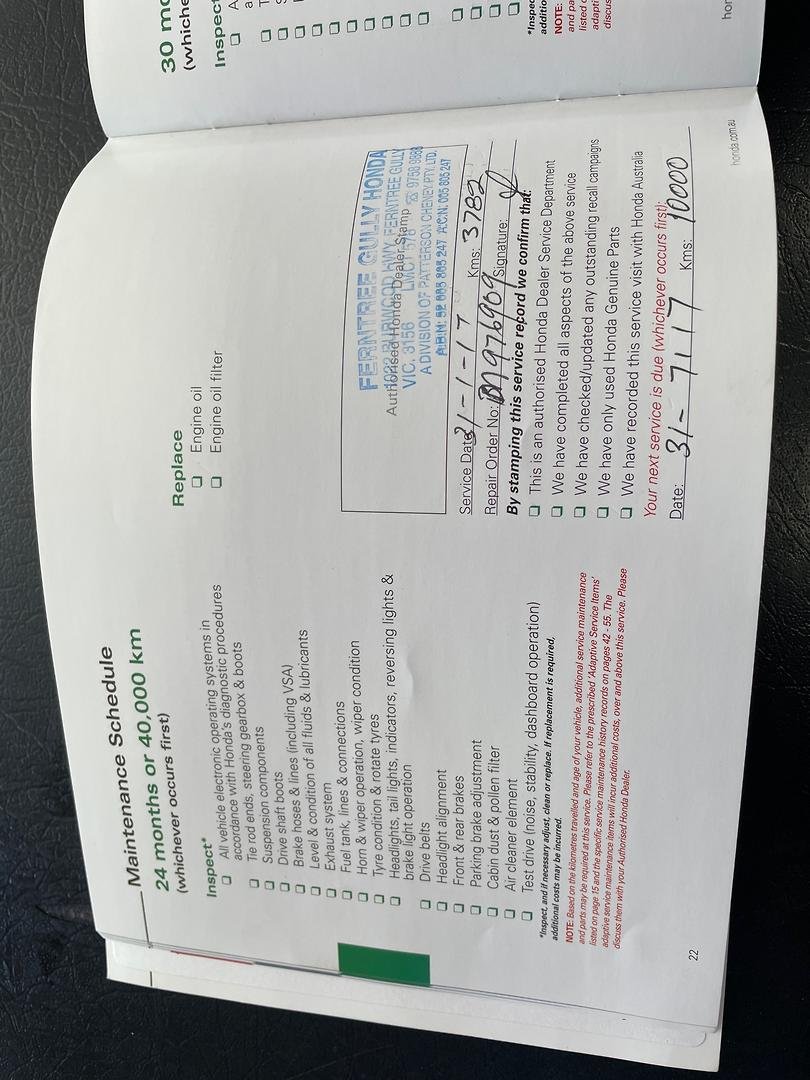 Maintenance Schedule
24 months or 40,000 km
(whichever occurs first)
Inspect*
All vehicle electronic operating systems in
accordance with Honda's diagnostic procedures
Tie rod ends, steering gearbox & boots
Suspension components
Drive shaft boots
Brake hoses & lines (including VSA)
Level & condition of all fluids & lubricants
Exhaust system
Fuel tank, lines & connections
Horn & wiper operation, wiper condition
Tyre condition & rotate tyres
Headlights, tail lights, indicators, reversing lights &
brake light operation
Drive belts
Headlight alignment
Front & rear brakes
Parking brake adjustment
Cabin dust & pollen filter
Air cleaner element
Test drive (noise, stability, dashboard operation)
*Inspect, and if necessary adjust, clean or replace. If replacement is required,
additional costs may be incurred.
NOTE: Based on the kilometres travelled and age of your vehicle, additional service maintenance
and parts may be required at this service. Please refer to the prescribed 'Adaptive Service Items'
listed on page 15 and the specific service maintenance history records on pages 42 - 55. The
adaptive service maintenance items will incur additional costs, over and above this service. Please
discuss them with your Authorised Honda Dealer.
22
Replace
Engine oil
Engine oil filter
FERNTREE GULLY HONDA
BURWOOD HWY, FERNTREE GULLY
Authorised Honda Dealer Stamp
VIC. 3156 LMCT
A DIVISION OF PATTERSON CHENEY PTY. LTD.
A.B.N: 52 005 805 247 A.C.N: 005 805 247
Service Date: 31-1-17 Kms: 3782
Repair Order No: Signature:
By stamping this service record we confirm that:
This is an authorised Honda Dealer Service Department
We have completed all aspects of the above service
We have checked/updated any outstanding recall campaigns
We have only used Honda Genuine Parts
We have recorded this service visit with Honda Australia
Your next service is due (whichever occurs first):
Date: 31-7117 Kms: 10000
honda.com.au
30 mo
(whiche
Inspect
*Inspec
additio
NOTE:
and pa
listed o
adapti
discus
hor